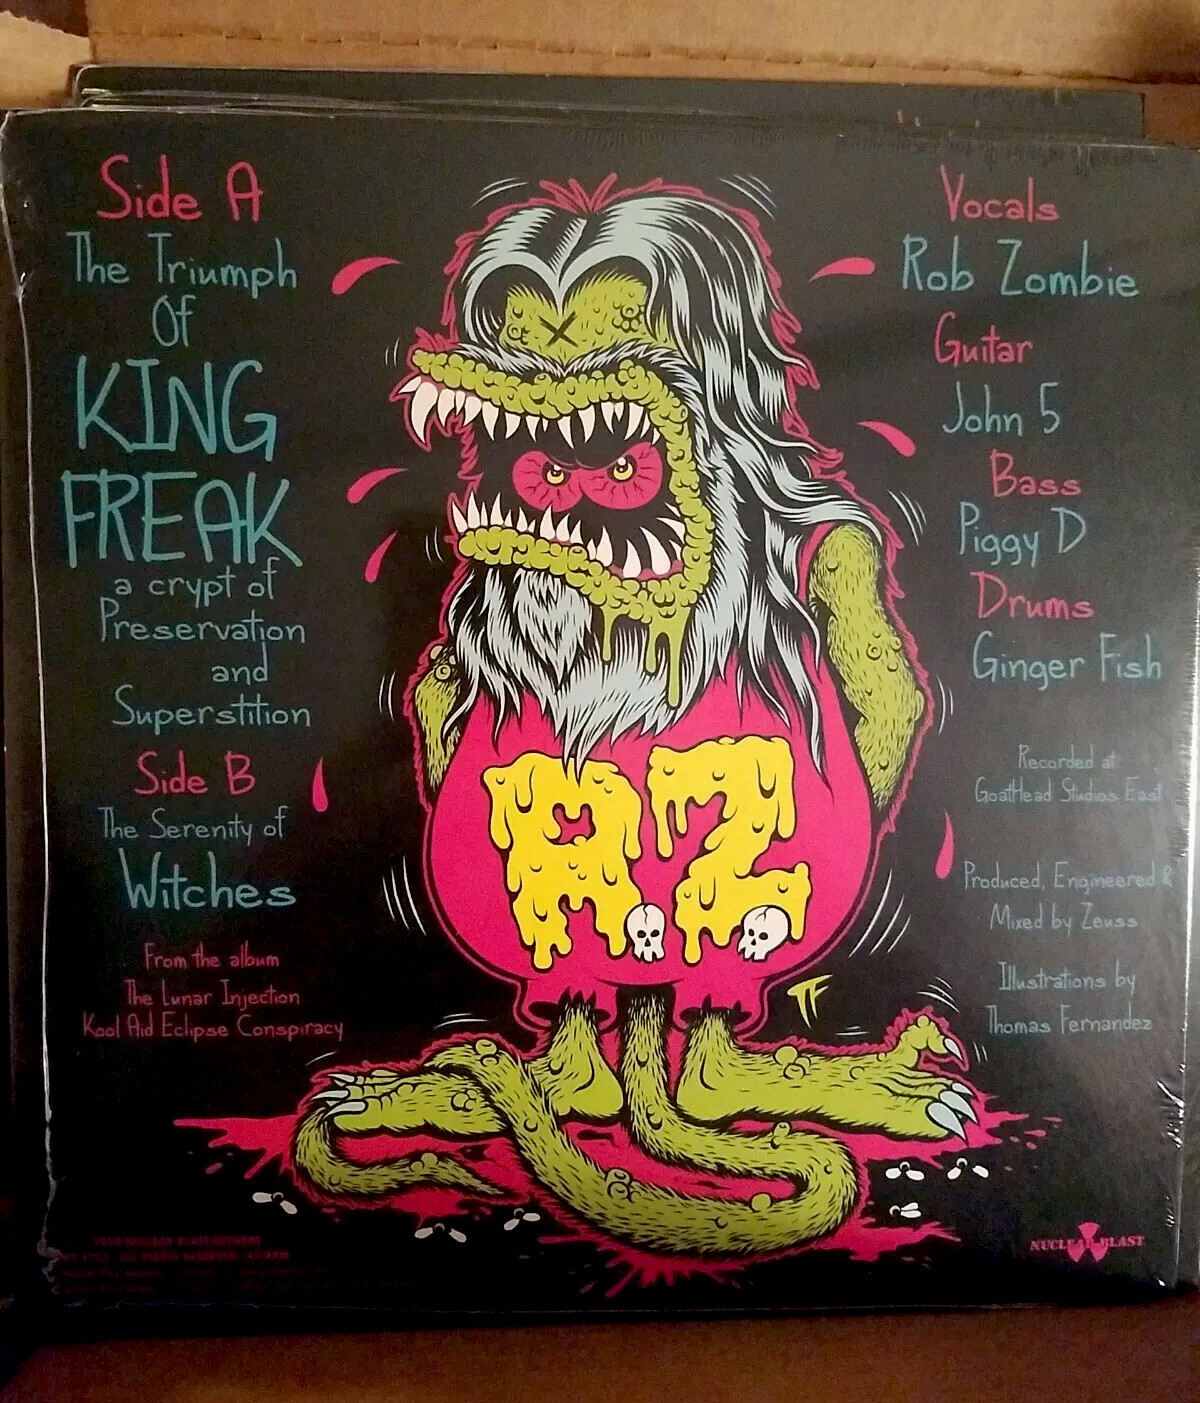 Side A
The Triumph
Of
KING
FREAK
a crypt of
Preservation
and
Superstition
Side B
The Serenity of
Witches
From the album
The Lunar Injection
Kool Aid Eclipse Conspiracy
Vocals
Rob Zombie
Guitar
John 5
Bass
Piggy D
Drums
Ginger Fish
Recorded at
GoatHead Studios East
Produced, Engineered &
Mixed by Zeuss
Illustrations by
Thomas Fernandez
RZ
TF
2020 NUCLEAR BLAST RECORDS
ALL RIGHTS RESERVED
NUCLEAR BLAST